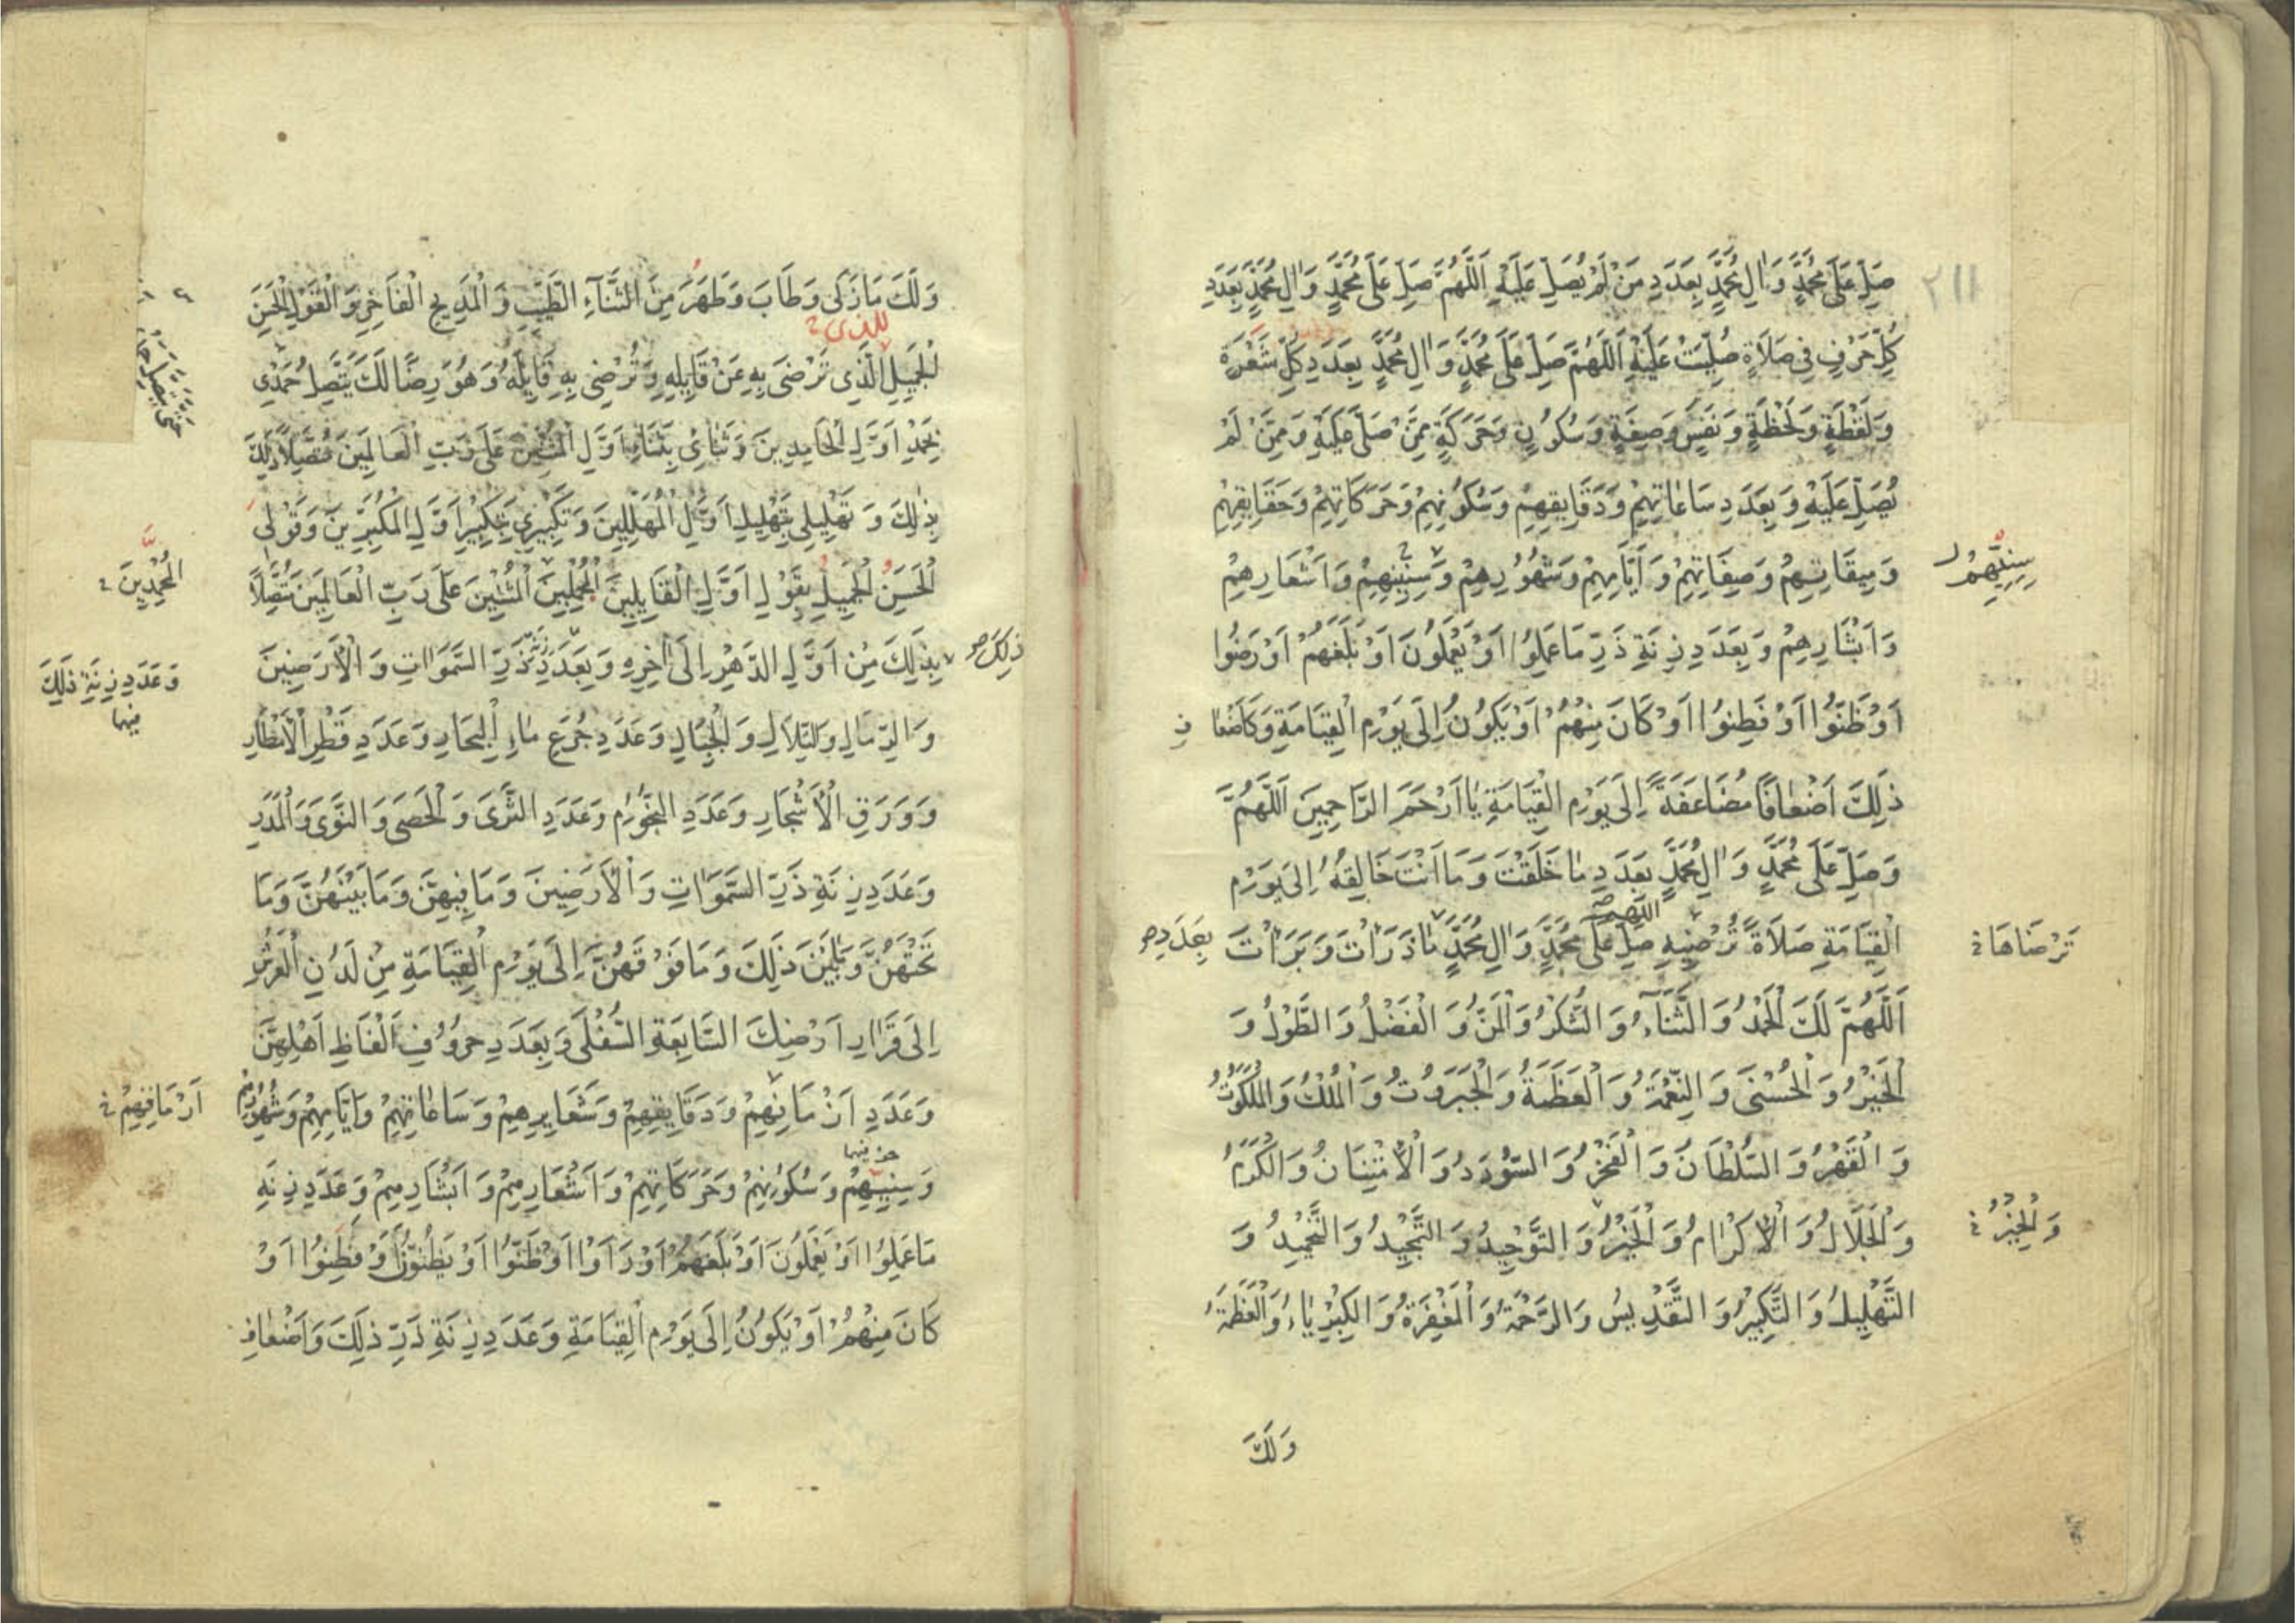 ٢١١
صَلِّ عَلَى مُحَمَّدٍ وَاٰلِ مُحَمَّدٍ بِعَدَدِ مَنْ لَمْ يُصَلِّ عَلَيْهِ اَللّٰهُمَّ صَلِّ عَلَى مُحَمَّدٍ وَاٰلِ مُحَمَّدٍ بِعَدَدِ
كُلِّ حَرْفٍ فِي صَلَاةٍ صُلِّيَتْ عَلَيْهِ اَللّٰهُمَّ صَلِّ عَلَى مُحَمَّدٍ وَاٰلِ مُحَمَّدٍ بِعَدَدِ كُلِّ شَعْرَةٍ
وَلَفْظَةٍ وَلَحْظَةٍ وَنَفَسٍ وَصِفَةٍ وَسُكُونٍ وَحَرَكَةٍ مِمَّنْ صَلَّى عَلَيْهِ وَمِمَّنْ لَمْ
يُصَلِّ عَلَيْهِ وَبِعَدَدِ سَاعَاتِهِمْ وَدَقَايِقِهِمْ وَسُكُونِهِمْ وَحَرَكَاتِهِمْ وَحَقَايِقِهِمْ
وَمِيقَاتِهِمْ وَصِفَاتِهِمْ وَاَيَّامِهِمْ وَشُهُورِهِمْ وَسِنِينِهِمْ وَاَشْعَارِهِمْ
سِنِيِّهِمْ
وَاَبْشَارِهِمْ وَبِعَدَدِ زِنَةِ ذَرِّ مَا عَمِلُوا اَوْ يَعْمَلُونَ اَوْ بَلَغَهُمْ اَوْ رَضُوا
اَوْ ظَنُّوا اَوْ فَطِنُوا اَوْ كَانَ مِنْهُمْ اَوْ يَكُونُ اِلَى يَوْمِ الْقِيَامَةِ وَكَاَضْعَا فِ
ذٰلِكَ اَضْعَافًا مُضَاعَفَةً اِلَى يَوْمِ الْقِيَامَةِ يَا اَرْحَمَ الرَّاحِمِينَ اَللّٰهُمَّ
وَصَلِّ عَلَى مُحَمَّدٍ وَاٰلِ مُحَمَّدٍ بِعَدَدِ مَا خَلَقْتَ وَمَا اَنْتَ خَالِقُهُ اِلَى يَوْمِ
اللهم
الْقِيَامَةِ صَلَاةً تُرْضِيهِ صَلِّ عَلَى مُحَمَّدٍ وَاٰلِ مُحَمَّدٍ مَا ذَرَاْتَ وَبَرَاْتَ
تَرْضَاهَا
بِعَدَدِ
اَللّٰهُمَّ لَكَ الْحَمْدُ وَالثَّنَآءُ وَالشُّكْرُ وَالْمَنُّ وَالْفَضْلُ وَالطَّوْلُ وَ
الْخَيْرُ وَالْحُسْنَى وَالنِّعْمَةُ وَالْعَظَمَةُ وَالْجَبَرُوتُ وَالْمُلْكُ وَالْمَلَكُوتُ
وَالْقَهْرُ وَالسُّلْطَانُ وَالْفَخْرُ وَالسُّؤْدَدُ وَالْاِمْتِنَانُ وَالْكَرَمُ
وَالْجَلَالُ وَالْاِكْرَامُ وَالْخَيْرُ وَالتَّوْحِيدُ وَالتَّمْجِيدُ وَالتَّحْمِيدُ وَ
وَالْخَيْرُ
التَّهْلِيلُ وَالتَّكْبِيرُ وَالتَّقْدِيسُ وَالرَّحْمَةُ وَالْمَغْفِرَةُ وَالْكِبْرِيَاءُ وَالْعَظَمَةُ
وَلَكَ
وَلَكَ مَا زَكَى وَطَابَ وَطَهُرَ مِنَ الثَّنَآءِ الطَّيِّبِ وَالْمَدِيحِ الْفَاخِرِ وَالْقَوْلِ الْحَسَنِ
الْجَمِيلِ الَّذِي تَرْضَى بِهِ عَنْ قَايِلِهِ وَتُرْضِى بِهِ قَايِلَهُ وَهُوَ رِضًا لَكَ يَتَّصِلُ حَمْدِي
بِحَمْدِ اَوَّلِ الْحَامِدِينَ وَثَنَائِي بِثَنَاءِ اَوَّلِ الْمُثْنِينَ عَلَى رَبِّ الْعَالَمِينَ مُتَّصِلًا ذٰلِكَ
بِذٰلِكَ وَتَهْلِيلِي بِتَهْلِيلِ اَوَّلِ الْمُهَلِّلِينَ وَتَكْبِيرِي بِتَكْبِيرِ اَوَّلِ الْمُكَبِّرِينَ وَقَوْلِي
الْحَسَنُ الْجَمِيلُ بِقَوْلِ اَوَّلِ الْقَايِلِينَ الْمُجْمِلِينَ الْمُثْنِينَ عَلَى رَبِّ الْعَالَمِينَ مُتَّصِلًا
ذٰلِكَ
بِذٰلِكَ مِنْ اَوَّلِ الدَّهْرِ اِلَى اٰخِرِهِ وَبِعَدَدِ زِنَةِ ذَرِّ السَّمٰوَاتِ وَالْاَرَضِينَ
وَعَدَدِ زِنَةِ ذٰلِكَ
وَالرِّمَالِ وَالتِّلَالِ وَالْجِبَالِ وَعَدَدِ جُرَعِ مَاءِ الْبِحَارِ وَعَدَدِ قَطْرِ الْاَمْطَارِ
وَوَرَقِ الْاَشْجَارِ وَعَدَدِ النُّجُومِ وَعَدَدِ الثَّرَى وَالْحَصَى وَالنَّوَى وَالْمَدَرِ
وَعَدَدِ زِنَةِ ذَرِّ السَّمٰوَاتِ وَالْاَرَضِينَ وَمَا فِيهِنَّ وَمَا بَيْنَهُنَّ وَمَا
تَحْتَهُنَّ وَمَا بَيْنَ ذٰلِكَ وَمَا فَوْقَهُنَّ اِلَى يَوْمِ الْقِيَامَةِ مِنْ لَدُنِ الْعَرْشِ
اِلَى قَرَارِ اَرْضِكَ السَّابِعَةِ السُّفْلَى وَبِعَدَدِ حُرُوفِ اَلْفَاظِ اَهْلِهِنَّ
وَعَدَدِ اَزْمَانِهِمْ وَدَقَايِقِهِمْ وَشَعَايِرِهِمْ وَسَاعَاتِهِمْ وَاَيَّامِهِمْ وَشُهُورِهِمْ
وَسِنِيِّهِمْ وَسُكُونِهِمْ وَحَرَكَاتِهِمْ وَاَشْعَارِهِمْ وَاَبْشَارِهِمْ وَعَدَدِ زِنَةِ
مَا عَمِلُوا اَوْ يَعْمَلُونَ اَوْ بَلَغَهُمْ اَوْ رَاَوْا اَوْ ظَنُّوا اَوْ يَظُنُّونَ اَوْ فَطِنُوا اَوْ
كَانَ مِنْهُمْ اَوْ يَكُونُ اِلَى يَوْمِ الْقِيَامَةِ وَعَدَدِ زِنَةِ ذَرِّ ذٰلِكَ وَاَضْعَافِ